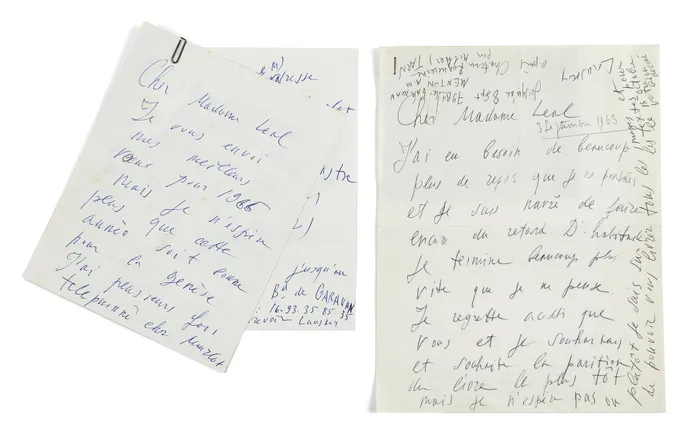 Cher Madame Leal
Je vous envoi
mes meilleurs
vœux pour 1966
mais je n'espere
plus que cette
année soit bonne
pour la genèse
J'ai plusieurs fois
telephonné chez Mourlot
adresse
jusqu'au
Bd de GARAVAN
16.93.35.85.35
revoir Lanskoy
Lanskoy
après Chateau
par Millars TARN
jusqu'à 8 Spt
MENTON A.M.
Cher Madame Leal
3 septembre 1963
J'ai eu besoin de beaucoup
plus de repos que je ne pensais
et je suis navré de
encore du retard D'habitude
je termine beaucoup plus
vite que je ne pense
Je regrette aussi que
vous et je
et souhaite la parition
du livre le plus tôt
mais je n'espere pas
plutôt Je suis sur
de pouvoir vous livrer tous les